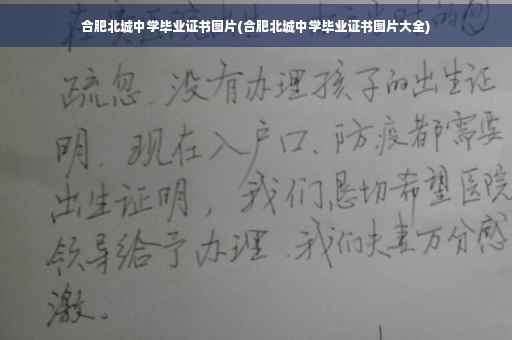 合肥北城中学毕业证书图片(合肥北城中学毕业证书图片大全)
疏忽、没有办理孩子的出生证
明。现在入户口、防疫都需要
出生证明，我们恳切希望医院
领导给予办理、我们夫妻万分感
激。